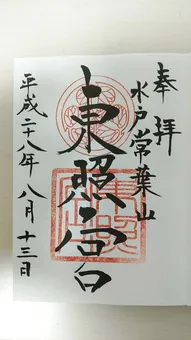 奉拝
水戸常葉山
東照宮
平成二十八年八月十三日